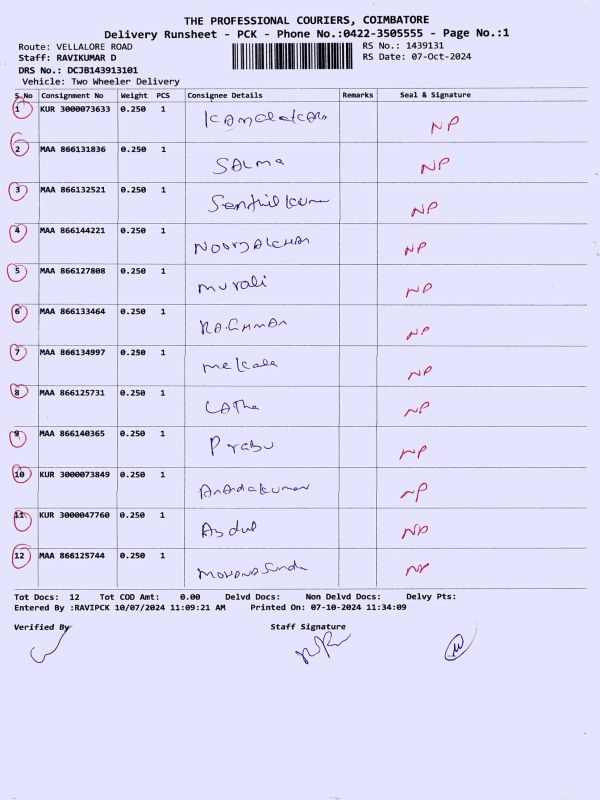 THE PROFESSIONAL COURIERS, COIMBATORE
Delivery Runsheet - PCK - Phone No.:0422-3505555 - Page No.:1
Route: VELLALORE ROAD RS No.: 1439131
Staff: RAVIKUMAR D RS Date: 07-Oct-2024
DRS No.: DCJB143913101
Vehicle: Two Wheeler Delivery
S.No Consignment No Weight PCS Consignee Details Remarks Seal & Signature
1 KUR 3000073633 0.250 1 NP
2 MAA 866131836 0.250 1 SALMA NP
3 MAA 866132521 0.250 1 NP
4 MAA 866144221 0.250 1 NP
5 MAA 866127808 0.250 1 murali NP
6 MAA 866133464 0.250 1 RAGHMAN NP
7 MAA 866134997 0.250 1 NP
8 MAA 866125731 0.250 1 LATHA NP
9 MAA 866140365 0.250 1 Prabu NP
10 KUR 3000073849 0.250 1 NP
11 KUR 3000047760 0.250 1 Abdul NP
12 MAA 866125744 0.250 1 NP
Tot Docs: 12 Tot COD Amt: 0.00 Delvd Docs: Non Delvd Docs: Delvy Pts:
Entered By :RAVIPCK 10/07/2024 11:09:21 AM Printed On: 07-10-2024 11:34:09
Verified By Staff Signature